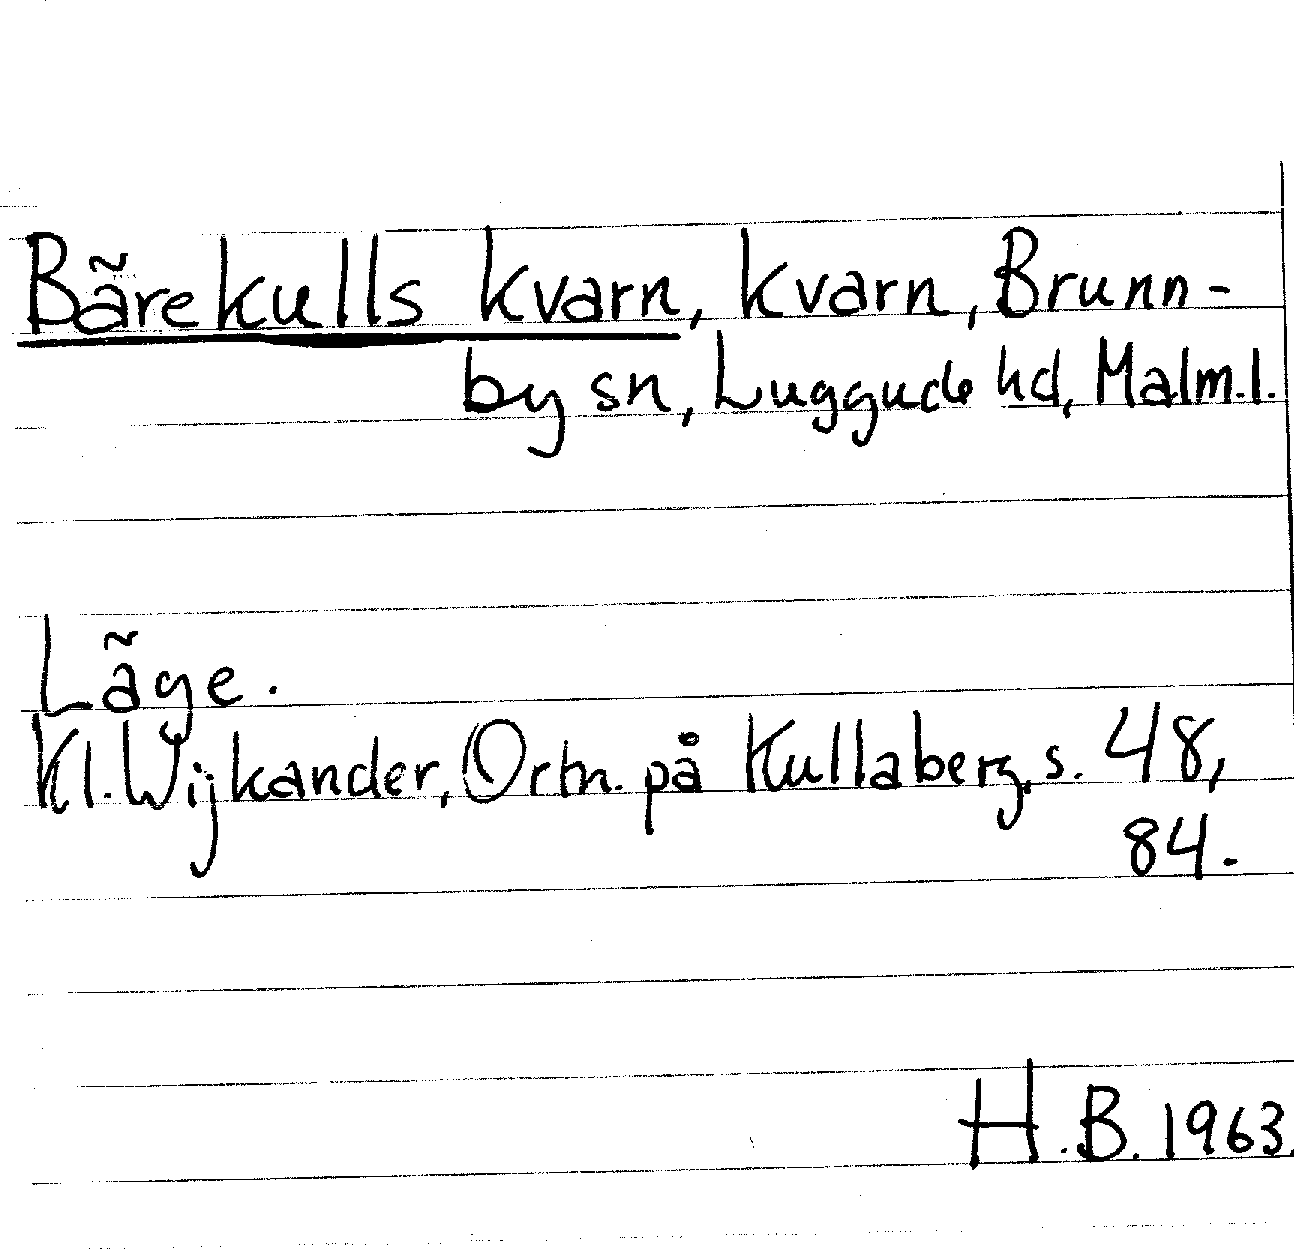 Bärekulls kvarn, kvarn, Brunn-
by sn, Luggude hd, Malm.l.
Läge.
Kl. Wijkander, Ortn. på Kullaberg, s. 48,
84.
H.B. 1963.